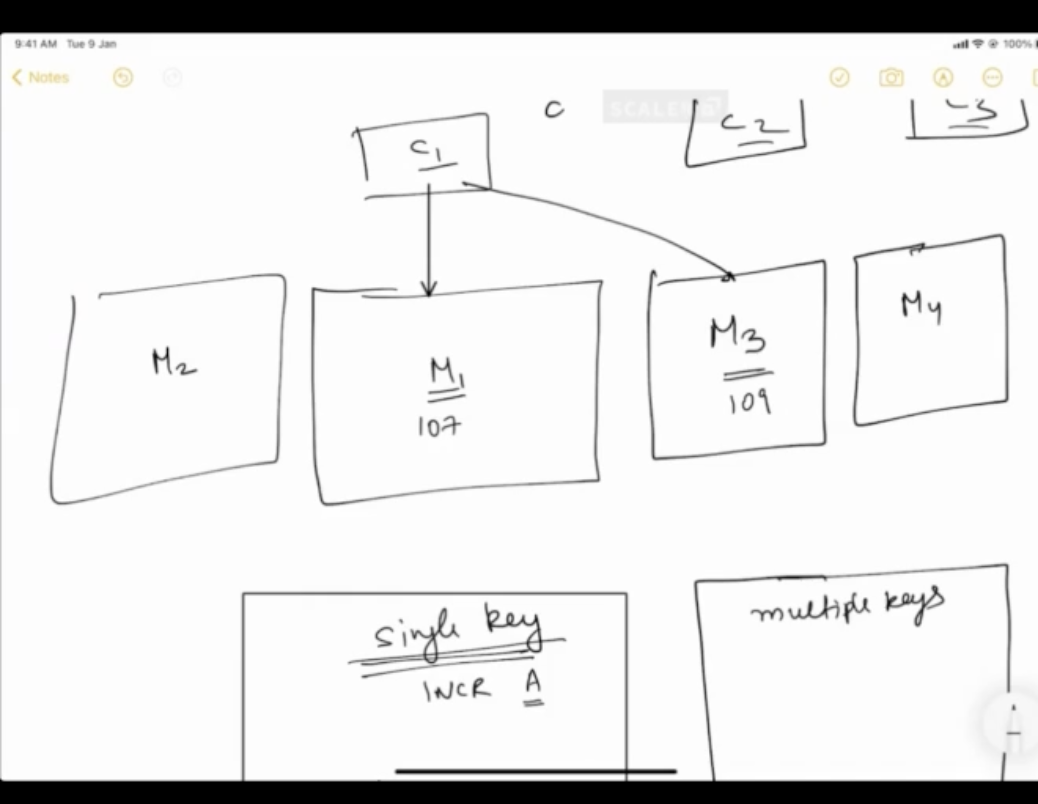 9:41 AM Tue 9 Jan
100%
Notes
SCALER
C
C1
C2
C3
M2
M1
107
M3
109
M4
single key
INCR A
multiple keys